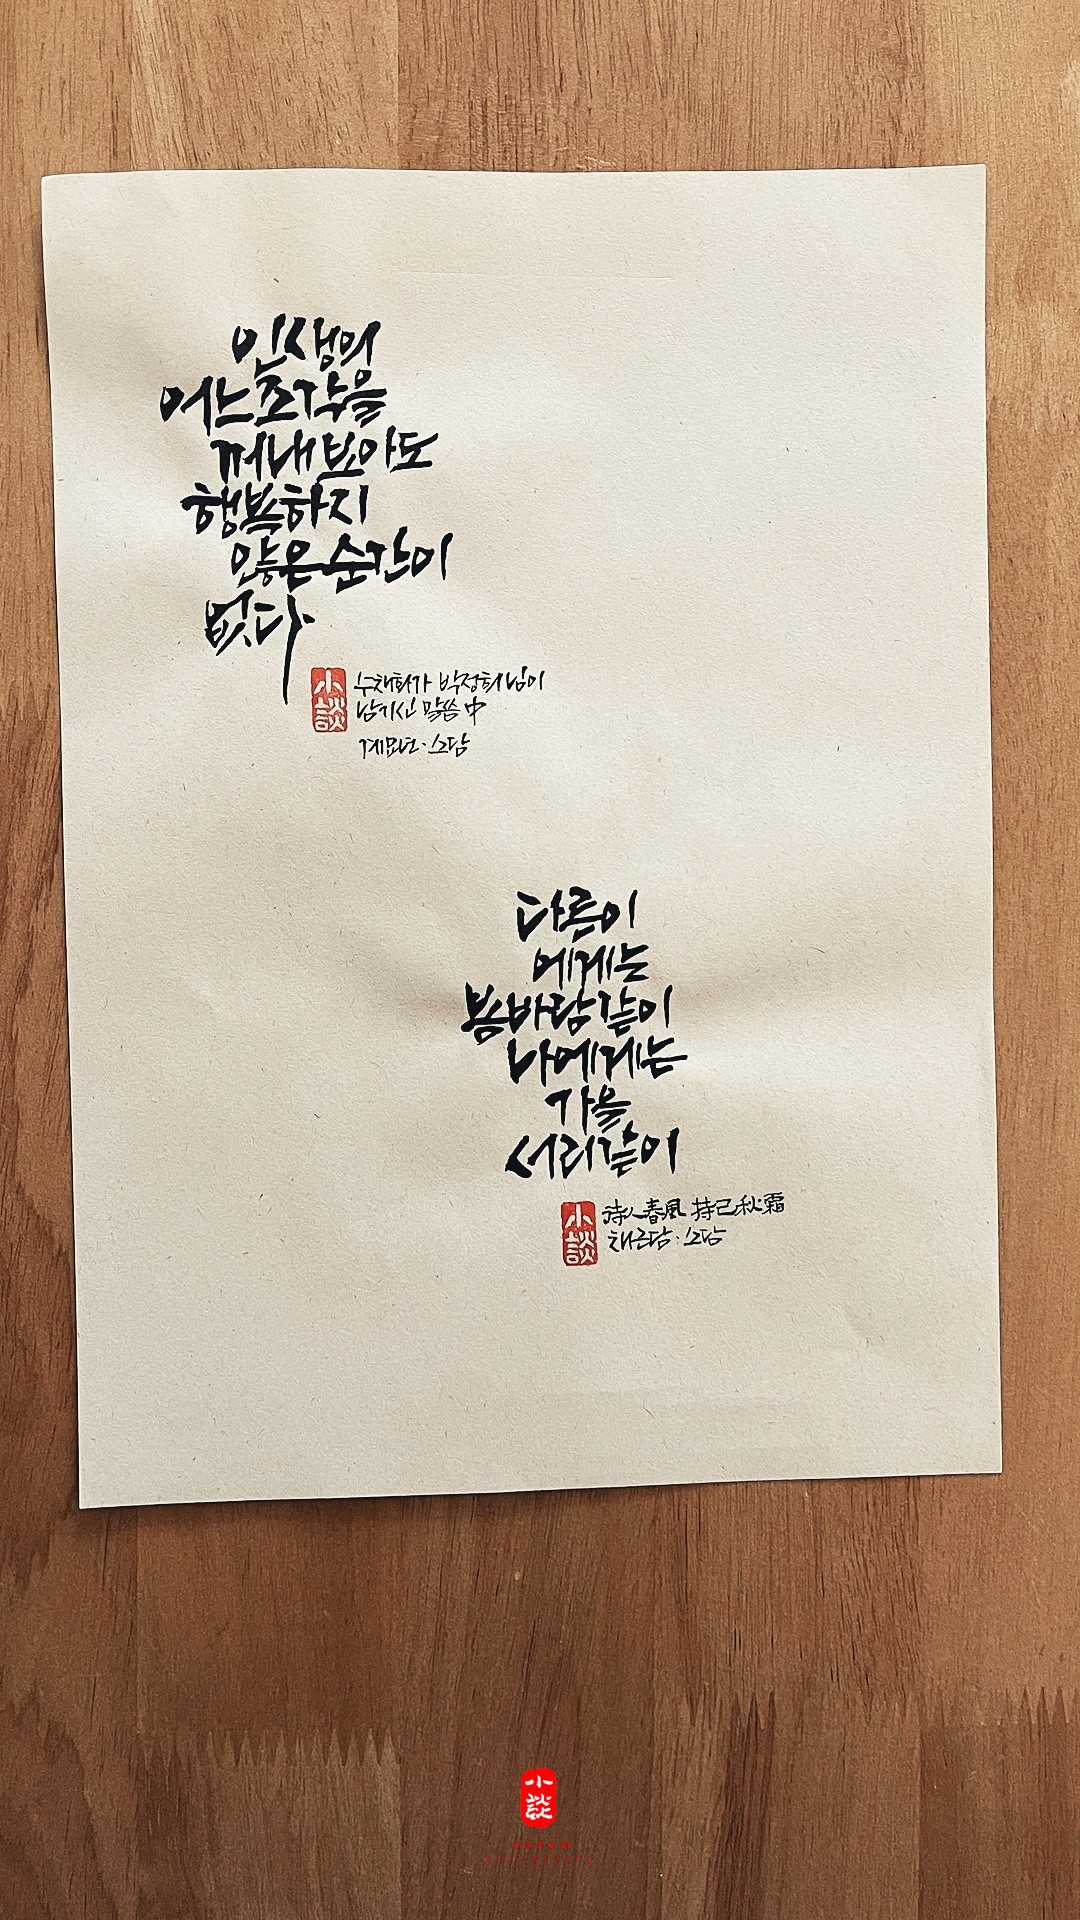 인생의
어느 조각을
꺼내 보아도
행복하지
않은 순간이
없다
小談
수채화가 박정희님이
남기신 말씀 中
계묘년·소담
다른이
에게는
봄바람같이
나에게는
가을
서리같이
小談
待人春風 持己秋霜
채근담·소담
小談